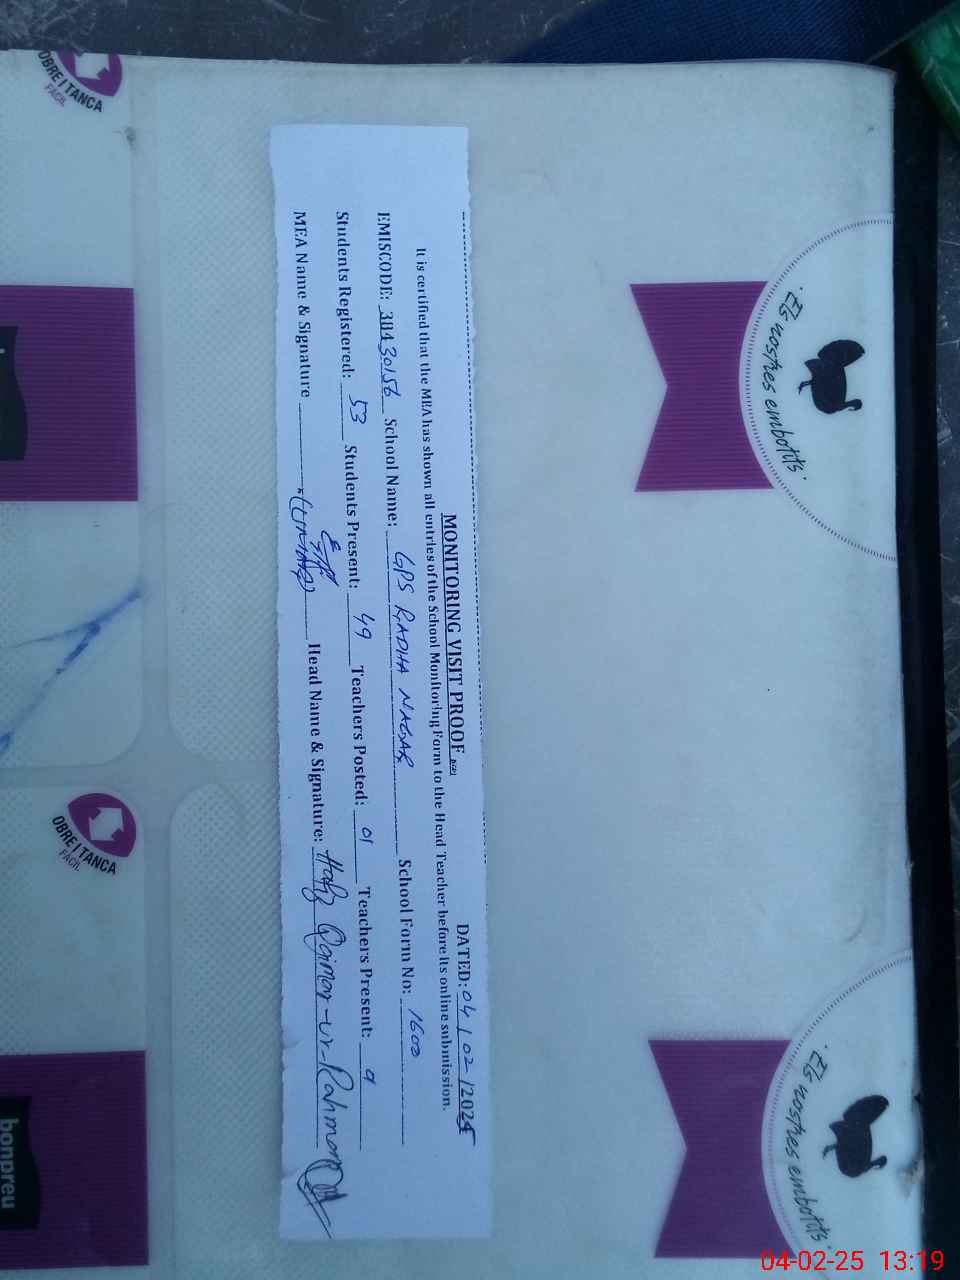 MONITORING VISIT PROOF
DATED: 04 / 02 / 2025
It is certified that the MEA has shown all entries of the School Monitoring Form to the Head Teacher before its online submission.
EMISCODE: 31130156 School Name: GPS RADHA NAGAR School Form No: 1600
Students Registered: 53 Students Present: 49 Teachers Posted: 01 Teachers Present:
MEA Name & Signature Head Name & Signature: Hafiz Qaimar-ur-Rahman
OBRE I TANCA
FÀCIL
OBRE I TANCA
FÀCIL
bonpreu
Els nostres embotits
Els nostres embotits
04-02-25 13:19